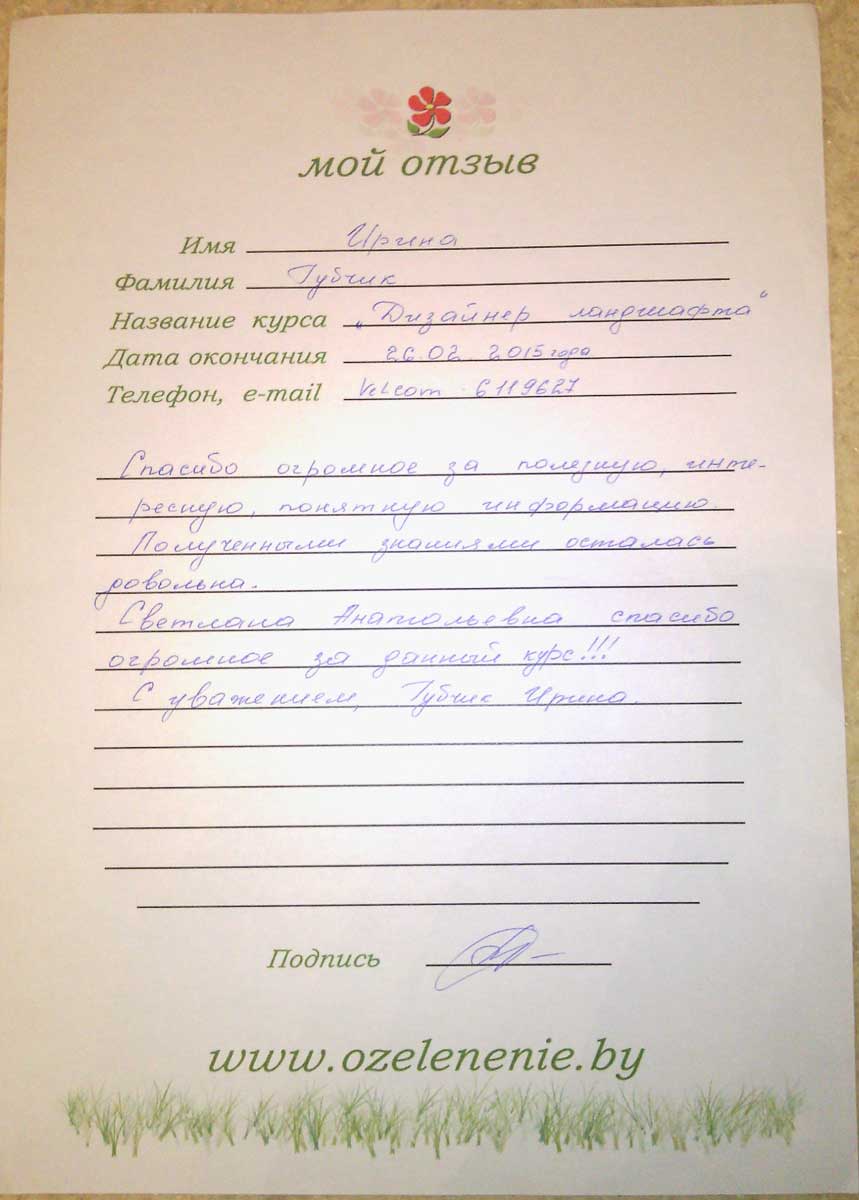 мой отзыв
Имя Ирина
Фамилия Губчик
Название курса „Дизайнер ландшафта“
Дата окончания 26.02.2015 года
Телефон, e-mail Velcom 6119627
Спасибо огромное за полезную, инте-
ресную, понятную информацию.
Полученными знаниями осталась
довольна.
Светлана Анатольевна спасибо
огромное за данный курс!!!
С уважением, Губчик Ирина.
Подпись
www.ozelenenie.by